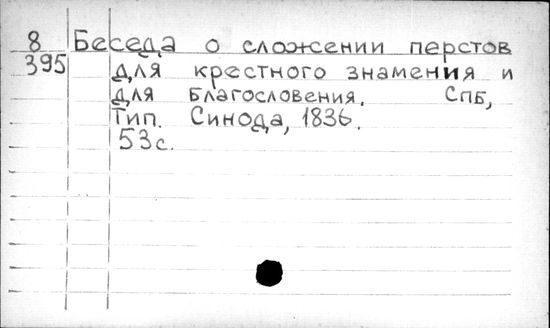 8 Беседа о сложении перстов
395 для крестного знамения и
для благословения. СПБ,
Тип. Синода, 1836.
53с.